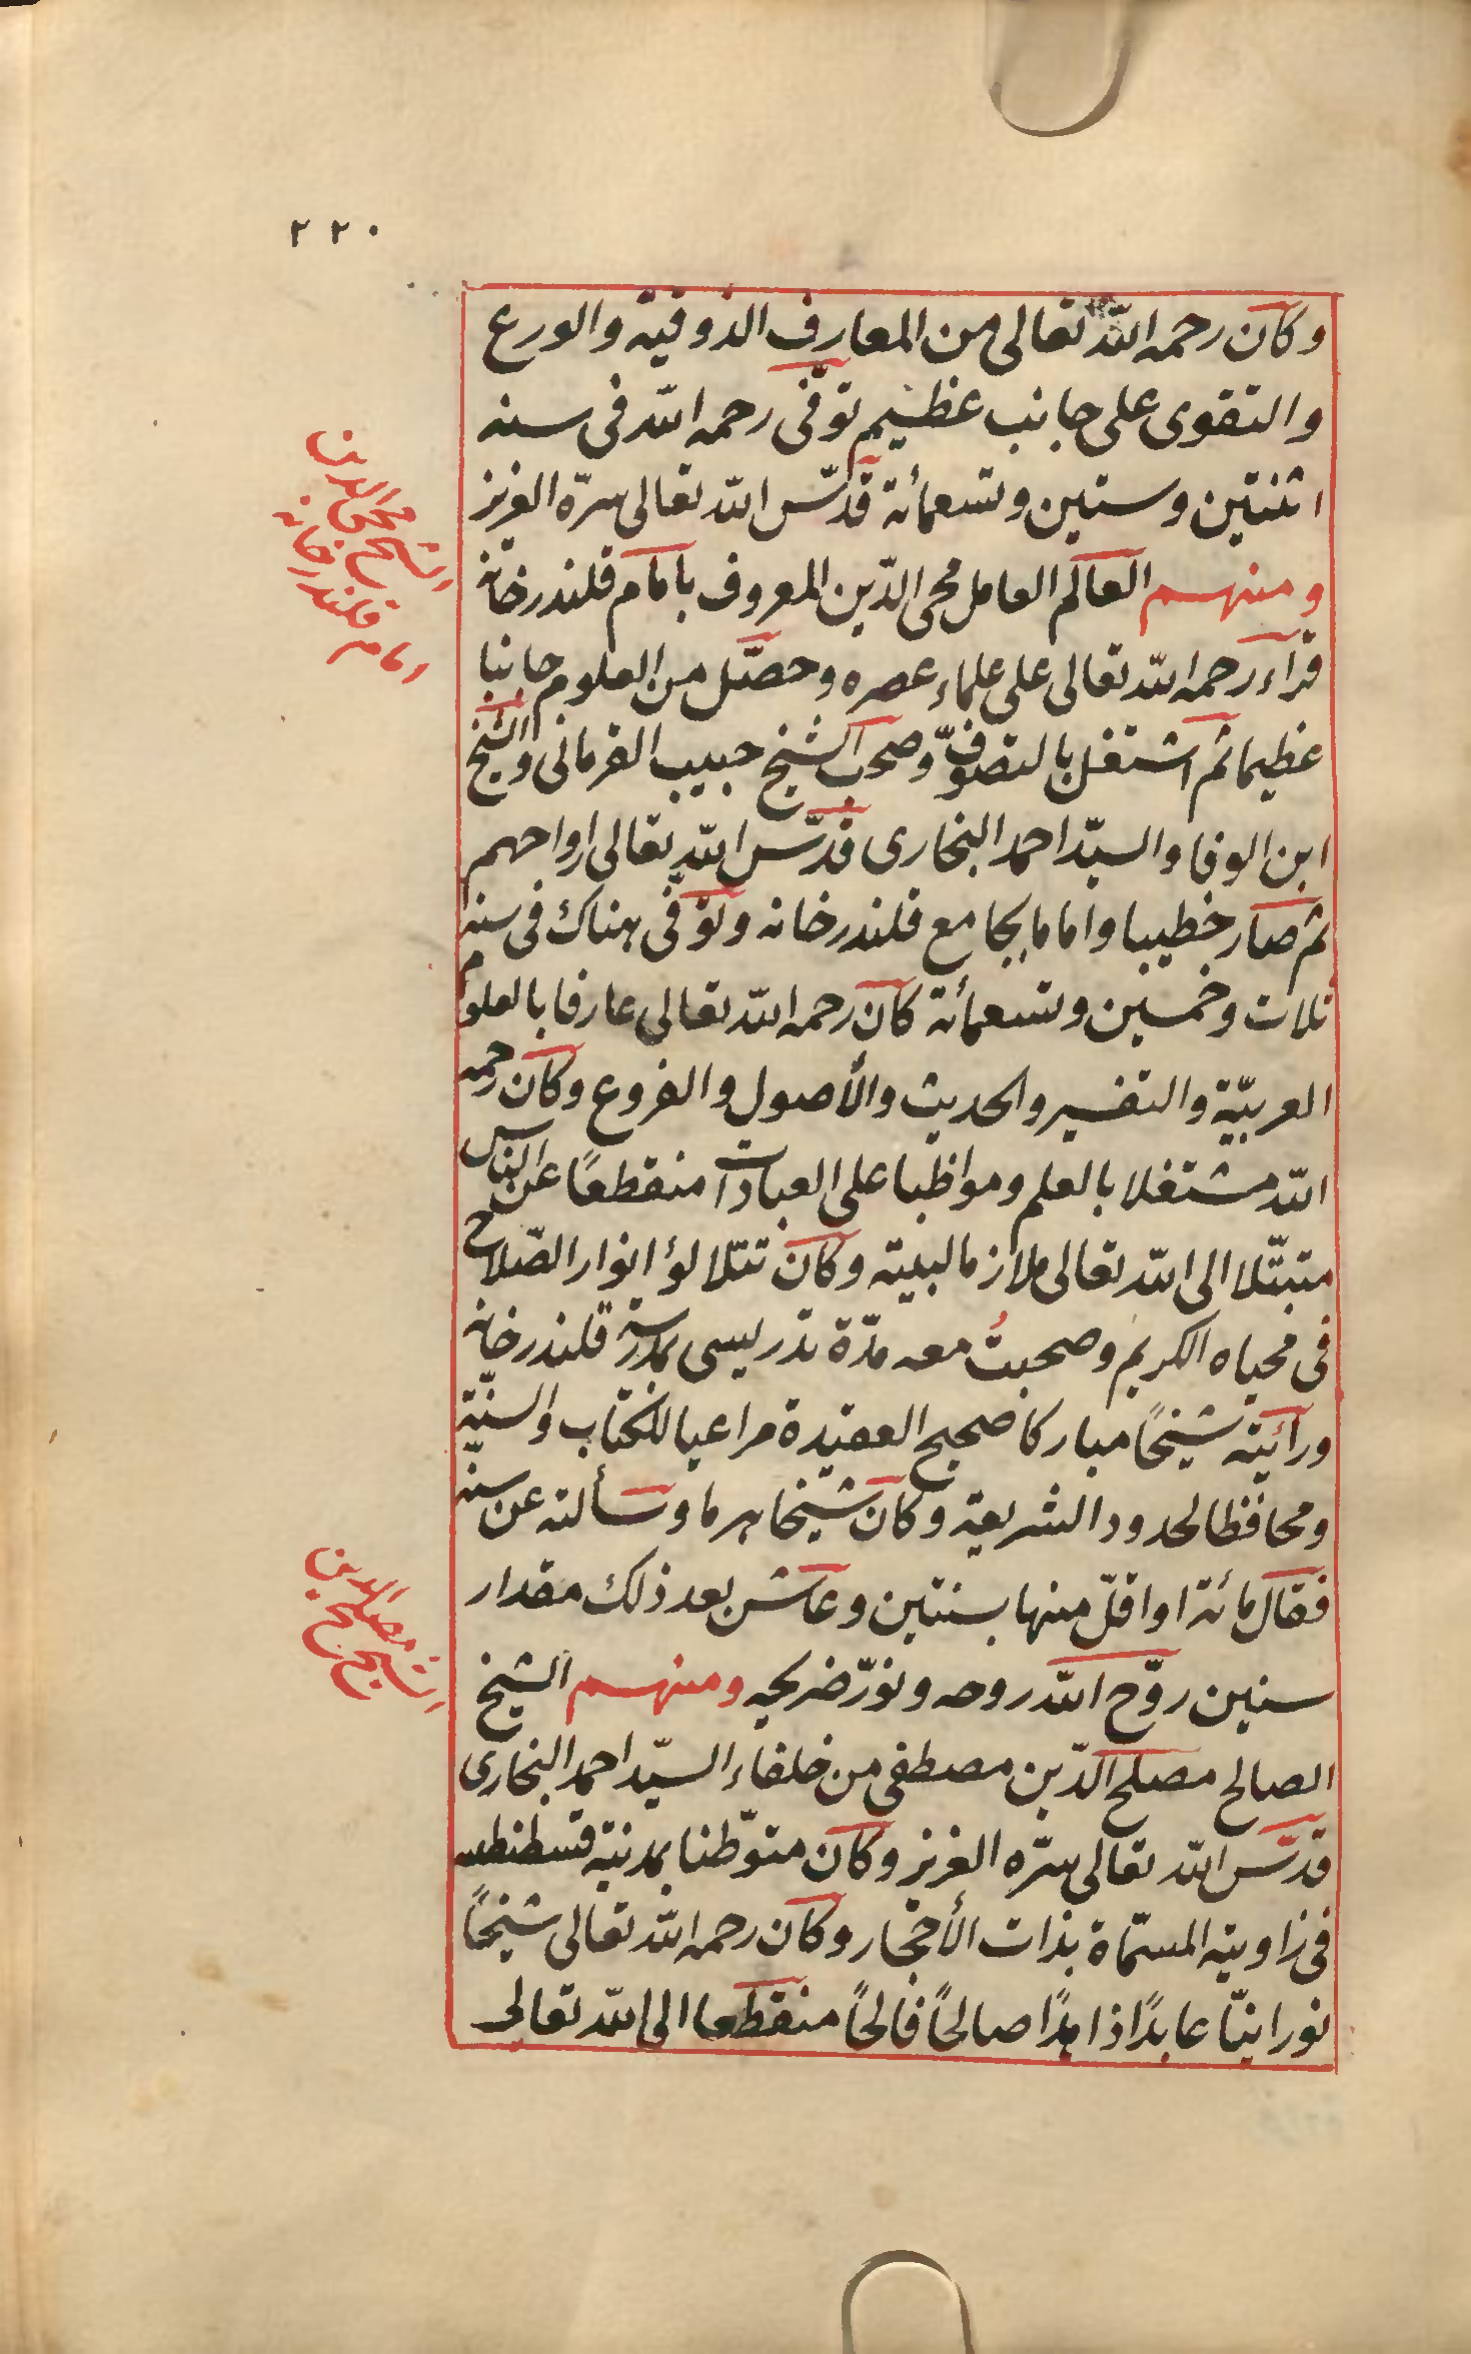 ٢٢٠
وكان رحمه الله تعالى من المعارف الذوقية والورع
والتقوى على جانب عظيم توفّى رحمه الله فى سنه
اثنتين وستين وتسعمأئة قدّس الله تعالى سرّه العزيز
الشيخ محيى الدين
امام قلندرخانه
ومنهم العالم العامل محيى الدّين المعروف بامام قلندرخانه
قراء رحمه الله تعالى على علماء عصره وحصّل من العلوم جانبا
عظيما ثم اشتغل بالتصوّف وصحب الشيخ حبيب القرمانى والشيخ
ابن الوفا والسيّد احمد البخارى قدّس الله تعالى ارواحهم
ثم صار خطيبا واماما بجامع قلندرخانه وتوفّى هناك فى سنه
ثلاث وخمسين وتسعمأئة كان رحمه الله تعالى عارفا بالعلوم
العربيّة والتفسير والحديث والأصول والفروع وكان رحمه
الله مشتغلا بالعلم ومواظبا على العبادات منقطعًا عن الناس
متبتّلا الى الله تعالى ملازما لبيته وكان تتلالؤ انوار الصّلاح
فى محياه الكريم وصحبتُ معه مدّة تدريسى بمدرسة قلندرخانه
ورأيته شيخًا مباركا صحيح العقيدة مراعيا للكتاب والسنّة
ومحافظا لحدود الشريعة وكان شيخا هرما وسألته عن سنّه
فقال مائة او اقلّ منها بسنتين وعاش بعد ذلك مقدار
سنين روّح الله روحه ونوّر ضريحه ومنهم الشيخ
الشيخ مصلح الدين
الصالح مصلح الدّين مصطفى من خلفاء السيّد احمد البخارى
قدّس الله تعالى سرّه العزيز وكان متوطّنا بمدينة قسطنطنيه
فى زاويته المسمّاة بذات الأحجار وكان رحمه الله تعالى شيخًا
نورانيّا عابدًا زاهدًا صالحًا فالحًا منقطعا الى الله تعالى